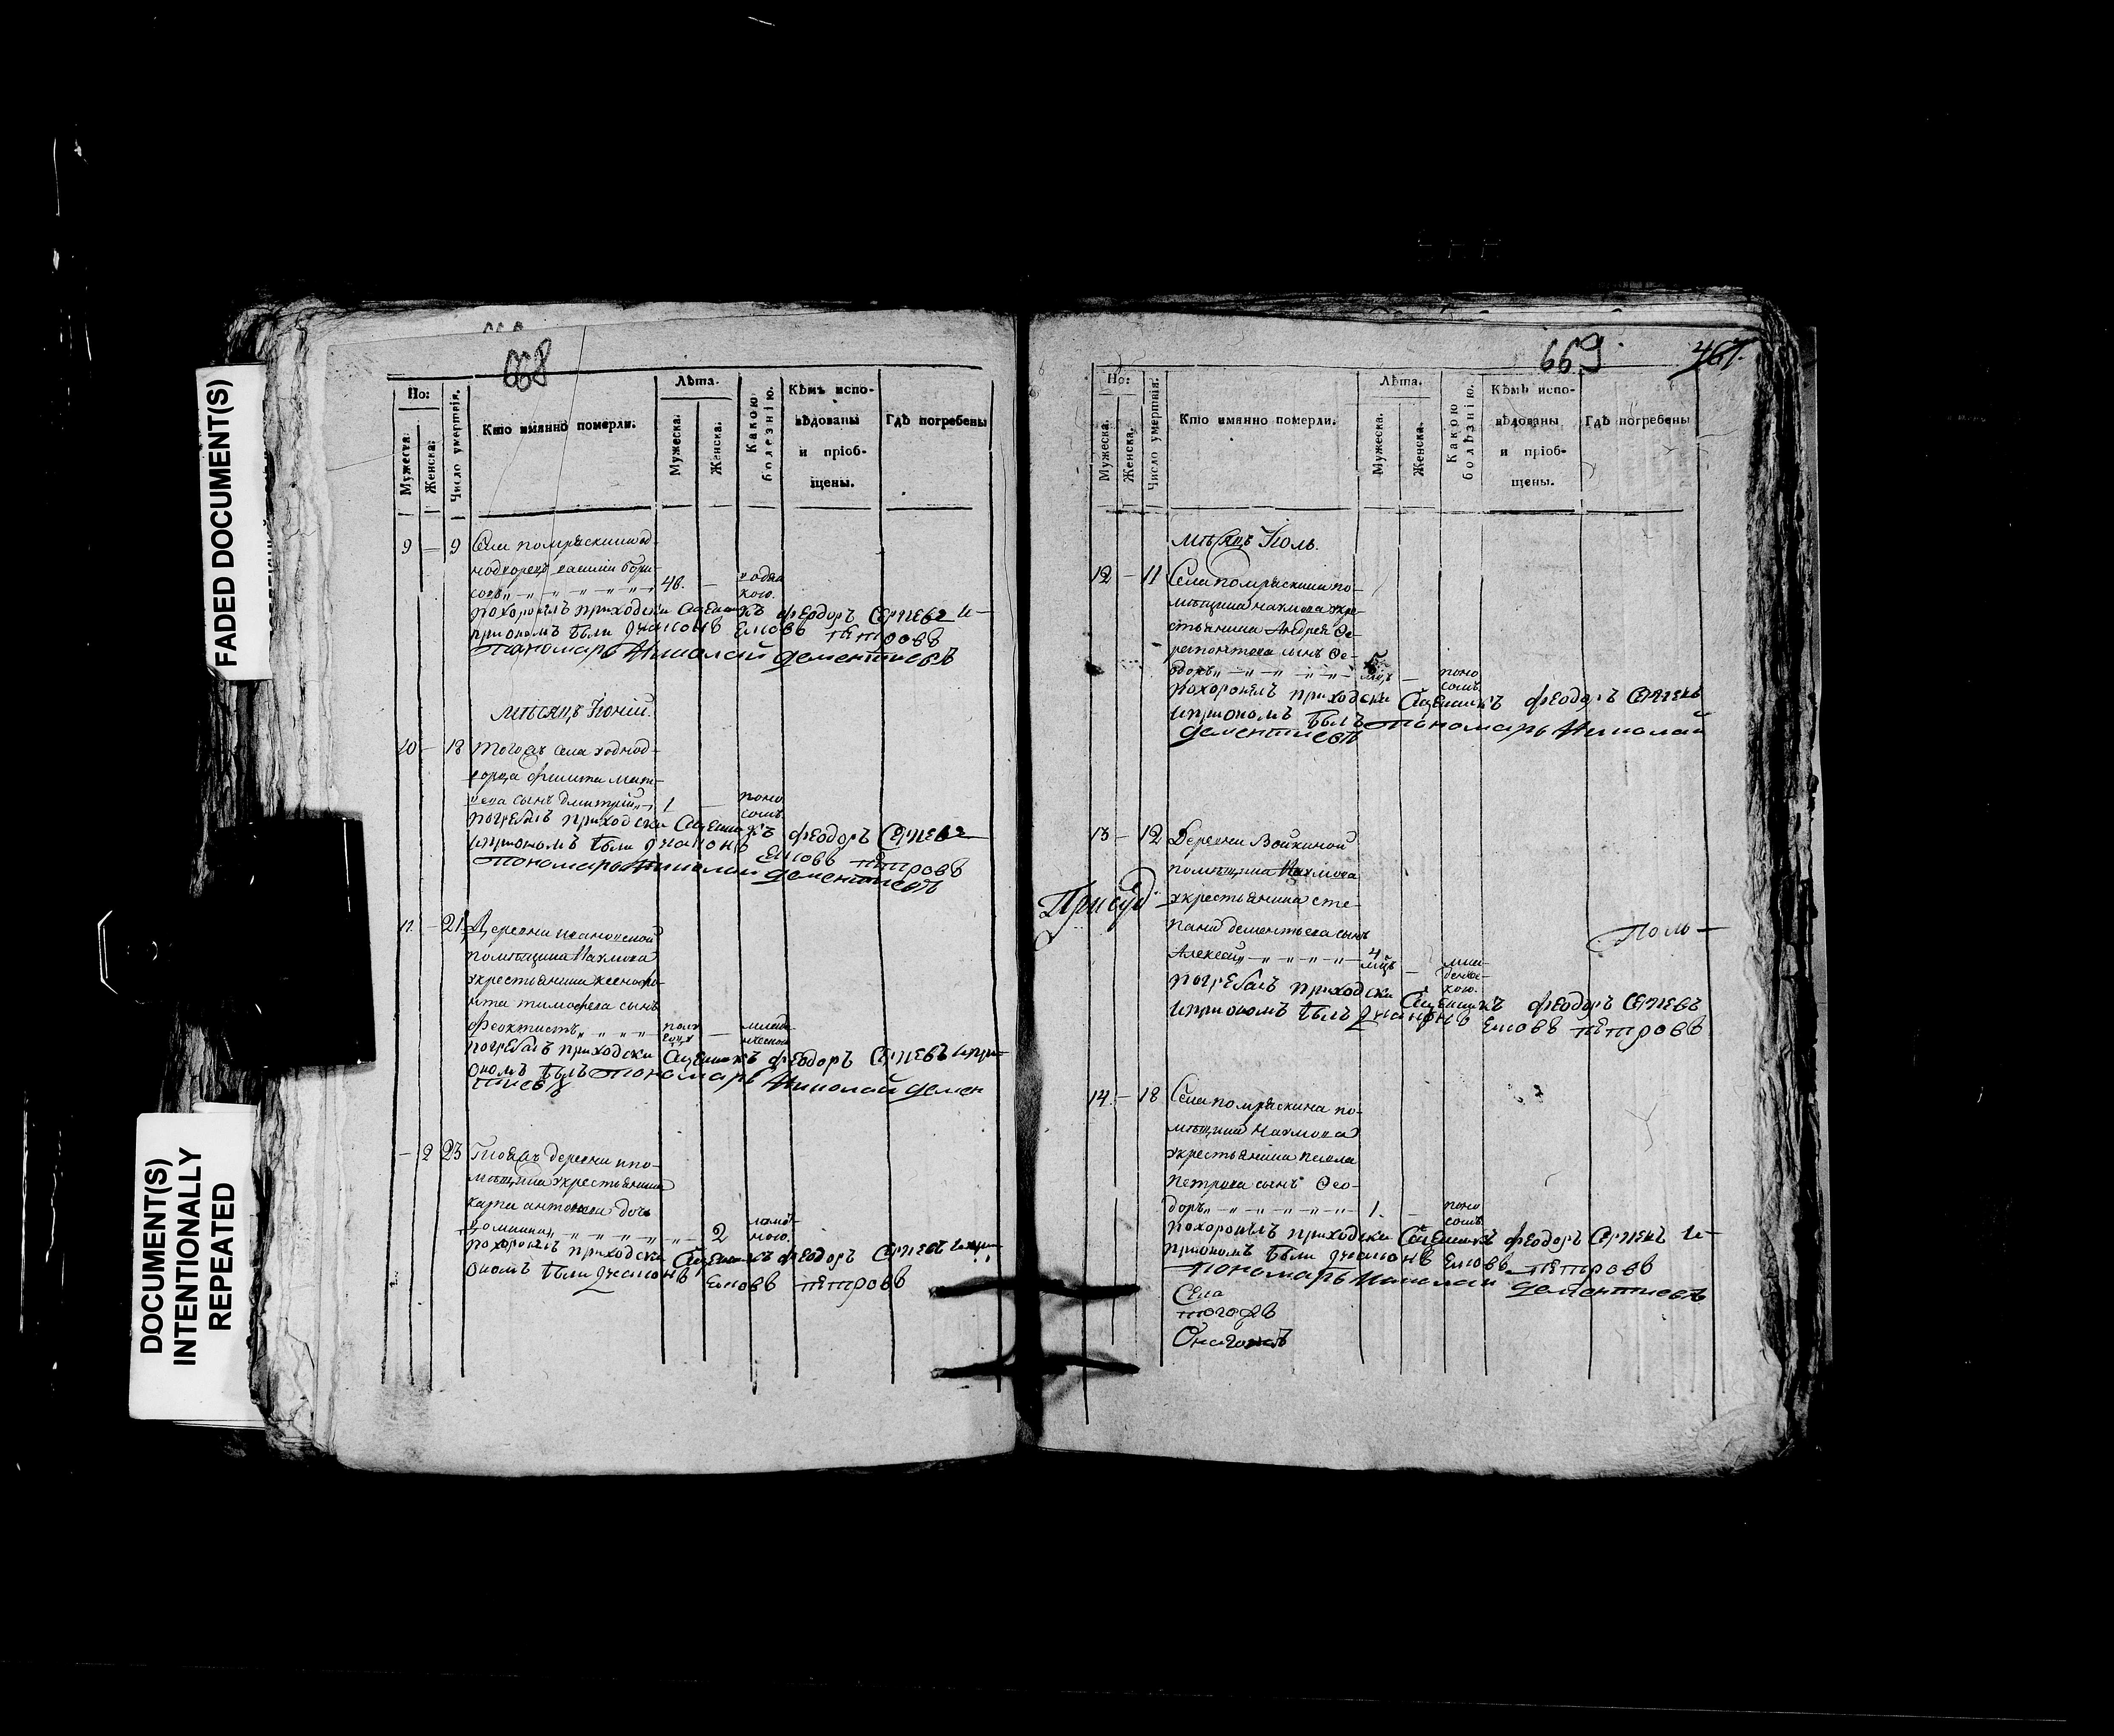 FADED DOCUMENT(S)
DOCUMENT(S)
INTENTIONALLY
REPEATED
668
Но:
Мужеска.
Женска.
Число умертвія.
Кто имянно померли.
Лѣта.
Мужеска.
Женска.
Какою
болезнію.
Кѣмъ испо-
вѣдованы
и пріоб-
щены.
Гдѣ погребены
9 — 9 Села помряскина од-
нодворецъ василий бори-
совъ 48. —
похоронилъ приходски Сщенникъ феодоръ Сергіевъ и
приономъ были
пономарь Николай дементиевъ
Мѣсяцъ Іюній.
10 — 18 тогожъ села
филипа
сынъ дмитрий 1 — поно
сомъ.
погребалъ приходски Сщенникъ феодоръ Сергіевъ
ипрiономъ были
петровъ
пономарь Николай дементиевъ
11 — 21 Деревни ивановской
помѣщика Нахмова
крестьянина ксенофо-
нта тимофеева сынъ
феоктистъ —
погребалъ приходски Сщенникъ феодоръ Сергіевъ ипри
ономъ былъ пономарь Николай демен
тиевъ
— 2 23 Тояжъ деревни ипо-
мѣщика крестьянина
карпа антонова дочь
2
похоронилъ приходски Сщенникъ феодоръ Сергіевъ ипри
ономъ были петровъ
669
467.
Но:
Мужеска.
Женска.
Число умертвія.
Кто имянно померли.
Лѣта.
Мужеска.
Женска.
Какою
болѣзнію.
Кѣмъ испо-
вѣдованы
и пріоб-
щены.
Гдѣ погребены
Мѣсяцъ Іюль.
12 — 11 Села помряскина по-
мѣщика нахмова кре-
стьянина Андрея Фе-
рапонтова сынъ Фе-
одоръ 5 — поно
сомъ.
похоронилъ приходски Сщенникъ феодоръ Сергіевъ
ипрiономъ былъ пономарь Николай
дементиевъ
13 — 12 Деревни Войкиной
помѣщика Нахмова
крестьянина сте-
пана дементьева сынъ
Алексей 4
мцъ — мла-
денче-
кою.
погребалъ приходски Сщенникъ феодоръ Сергіевъ
ипрiономъ былъ петровъ
14 — 18 Села помряскина по-
мѣщика Нахмова
крестьянина павла
петрова сынъ Фео-
доръ 1. — поно
сомъ.
похоронилъ приходски Сщенникъ феодоръ Сергіевъ и
приономъ были петровъ
пономарь Николай дементиевъ
Села
тогожъ